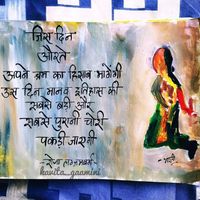 जिस दिन
औरत
अपने श्रम का हिसाब मांगेगी
उस दिन मानव इतिहास की
सबसे बड़ी और
सबसे पुरानी चोरी
पकड़ी जाएगी
kavita_gaamini